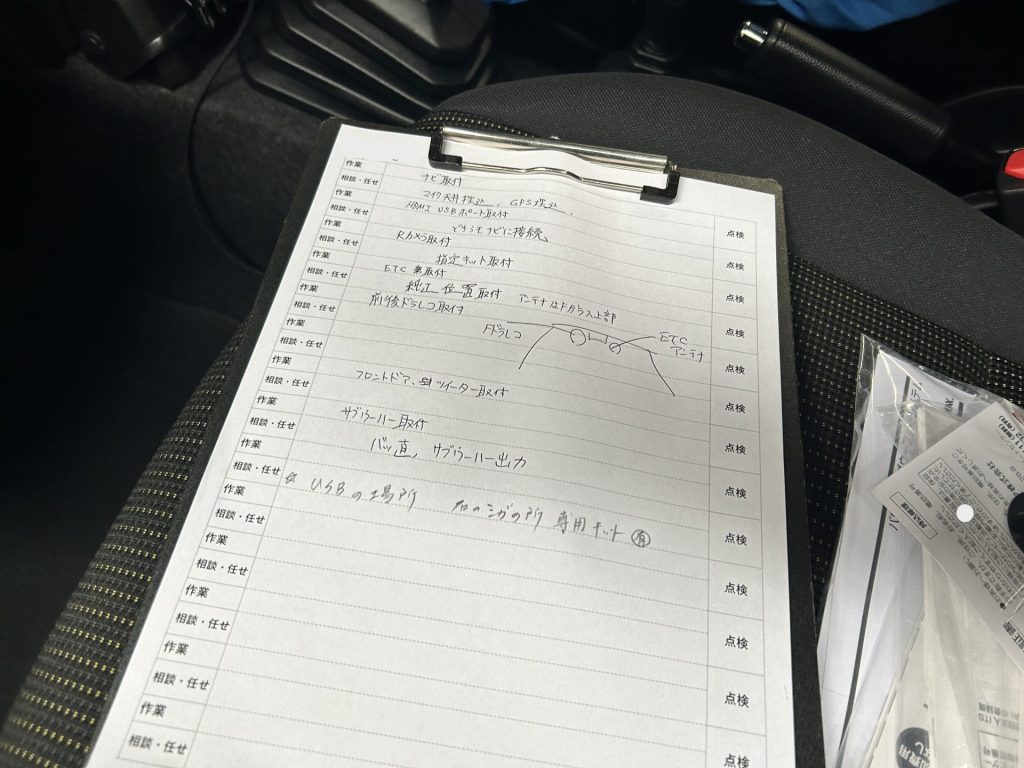 作業
相談・任せ ナビ取付
作業 マイク天井埋込、GPS埋込、
相談・任せ HDMI USBポート取付 点検
作業 どちらもナビに接続、
相談・任せ Rカメラ取付 点検
作業 指定キット取付
相談・任せ ETC 取付 点検
作業 純正位置取付 アンテナはFガラス上部
相談・任せ 前後ドラレコ取付 点検
作業 Fドラレコ ETCアンテナ
相談・任せ 点検
作業
相談・任せ フロントドア、ツイーター取付 点検
作業
相談・任せ サブウーハー取付 点検
作業 バッ直、サブウーハー出力
相談・任せ 点検
作業 ☆ USBの場所 右のミガの所 専用キット 有
相談・任せ 点検
作業
相談・任せ 点検
作業
相談・任せ 点検
作業
相談・任せ 点検
作業
相談・任せ 点検
株式会社